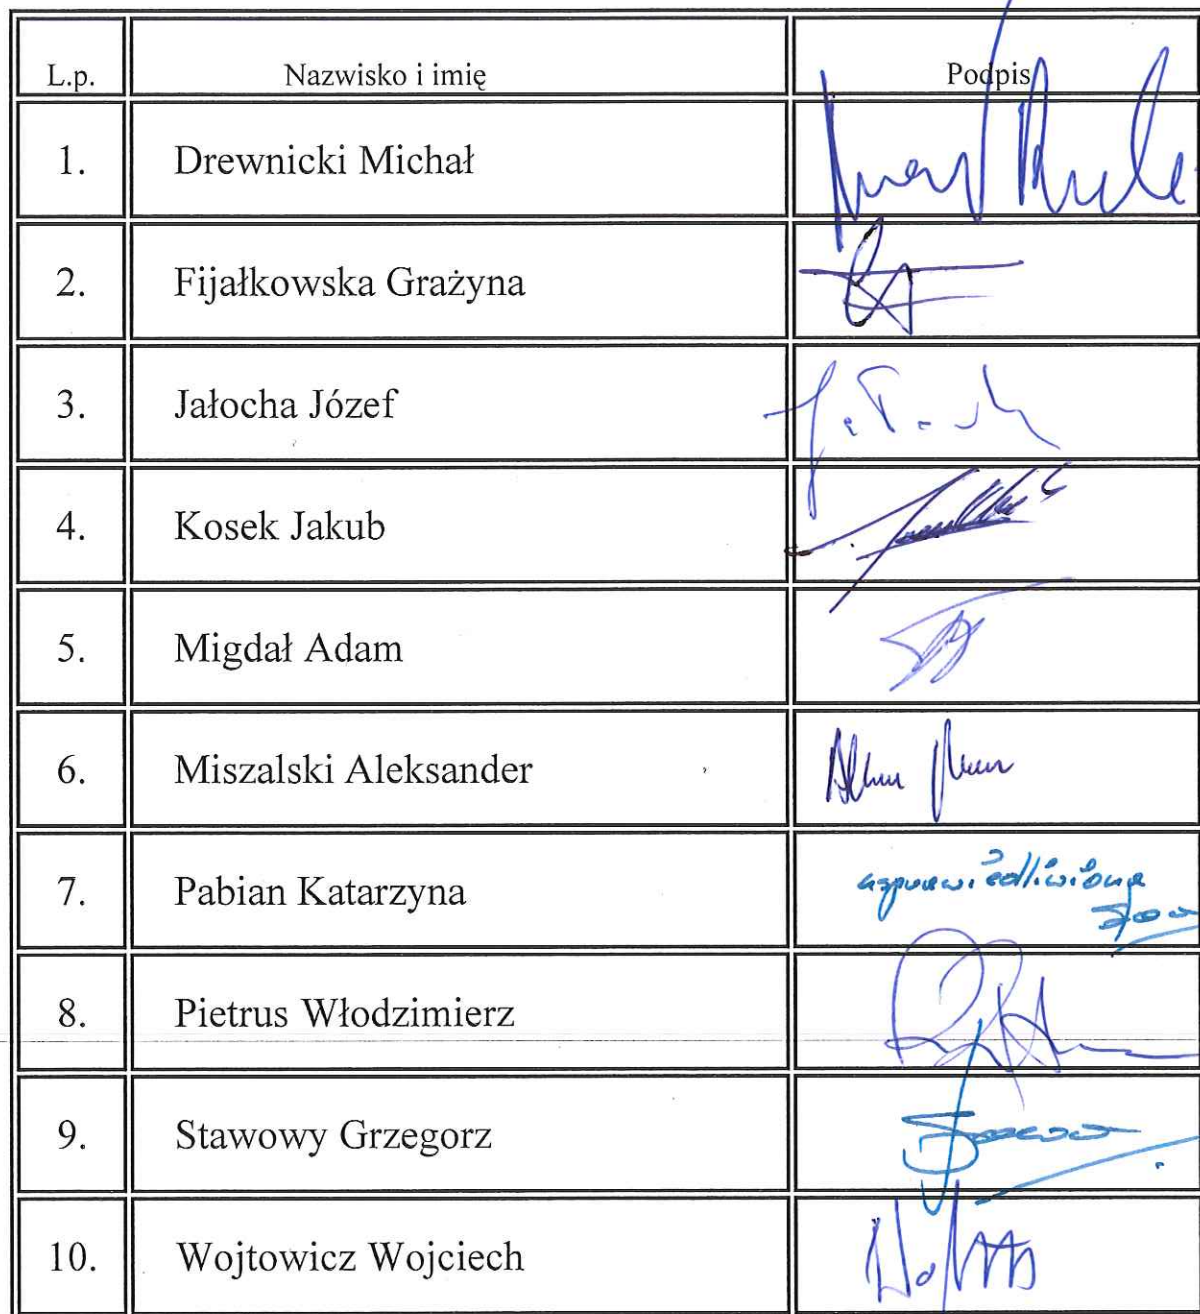 L.p. Nazwisko i imię Podpis
1. Drewnicki Michał
2. Fijałkowska Grażyna
3. Jałocha Józef
4. Kosek Jakub
5. Migdał Adam
6. Miszalski Aleksander
7. Pabian Katarzyna usprawiedliwiona
8. Pietrus Włodzimierz
9. Stawowy Grzegorz
10. Wojtowicz Wojciech